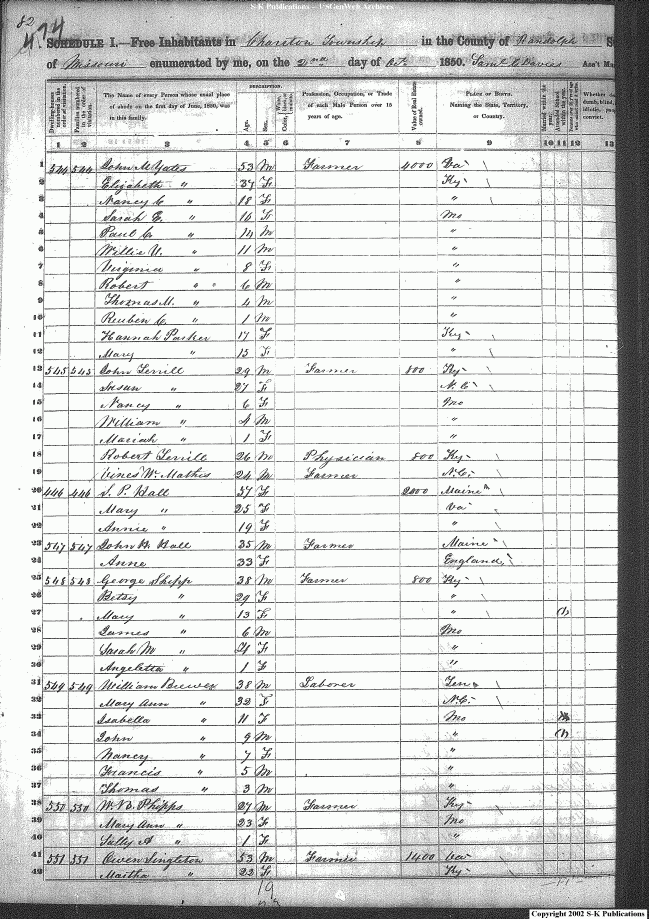 S-K Publications -- USGenWeb Archives
82
474
SCHEDULE I.—Free Inhabitants in Chariton Township in the County of Randolph S
of Missouri enumerated by me, on the 2nd day of Oct 1850. Saml C Davies Ass't Ma
Dwelling-houses numbered in the order of visitation.
Families numbered in the order of visitation.
The Name of every Person whose usual place of abode on the first day of June, 1850, was in this family.
DESCRIPTION.
Age.
Sex.
Profession, Occupation, or Trade of each Male Person over 15 years of age.
Value of Real Estate owned.
PLACE OF BIRTH. Naming the State, Territory, or Country.
Married within the year.
1 2 3 4 5 6 7 8 9 10 11 12 13
1 544 544 John M Yates 53 M Farmer 4000 Va
2 Elizabeth " 37 F Ky
3 Nancy C " 18 F "
4 Sarah E. " 16 F Mo
5 Paul C. " 14 M "
6 Willie U. " 11 M "
7 Virginia " 8 F "
8 Robert " " 6 M "
9 Thomas M. " 4 M "
10 Reuben C. " 1 M "
11 Hannah Parker 17 F Ky
12 Mary " 15 F "
13 545 545 John Terrill 29 M Farmer 800 Ky
14 Susan " 27 F N.C.
15 Nancy " 6 F Mo
16 William " 4 M "
17 Mariah " 1 F "
18 Robert Terrill 26 M Physician 800 Ky
19 Vines W. Mathis 24 M Farmer N.C.
20 446 446 S. P. Hall 57 F 2000 Maine
21 Mary " 25 F Va
22 Annie " 19 F "
23 547 547 John H Hall 35 M Farmer Maine
24 Anne 33 F England
25 548 548 George Shipp 38 M Farmer 800 Ky
26 Betsy " 29 F "
27 Mary " 13 F " (1)
28 James " 6 M Mo
29 Sarah M " 4 F "
30 Angeletta " 1 F "
31 549 549 William Brewer 38 M Laborer Ten
32 Mary Ann " 32 F N.C.
33 Isabella " 11 F Mo
34 John " 9 M " (1)
35 Nancy " 7 F "
36 Francis " 5 M "
37 Thomas " 3 M "
38 550 550 W. B. Phipps 27 M Farmer Ky
39 Mary Ann " 23 F Mo
40 Sally A " 1 F "
41 551 551 Owen Singleton 53 M Farmer 1400 Va
42 Martha " 22 F Ky
19
Copyright 2002 S-K Publications